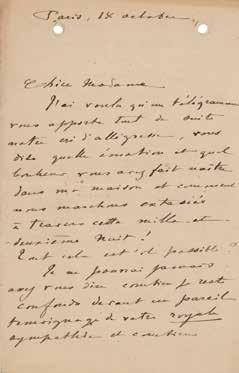 Paris, 18 octobre
Chère Madame
J'ai voulu qu'un télégramme
vous apporte tout de suite
notre cri d'allégresse, vous
dise quelle émotion et quel
bonheur vous avez fait naître
dans ma maison et comment
nous marchons extasiés
à travers cette mille et
deuxième Nuit!
Tout cela est-il possible?
Je ne pourrai jamais
assez vous dire combien je reste
confondu devant un pareil
témoignage de votre royale
sympathie et combien